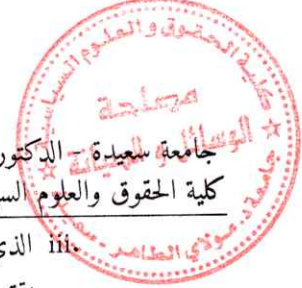 كلية الحقوق و العلوم السياسية
مصلحة
الوسائل و الصيانة
جامعة د. مولاي الطاهر - سعيدة
جامعة سعيدة - الدكتور
كلية الحقوق والعلوم الس
.iii الذي